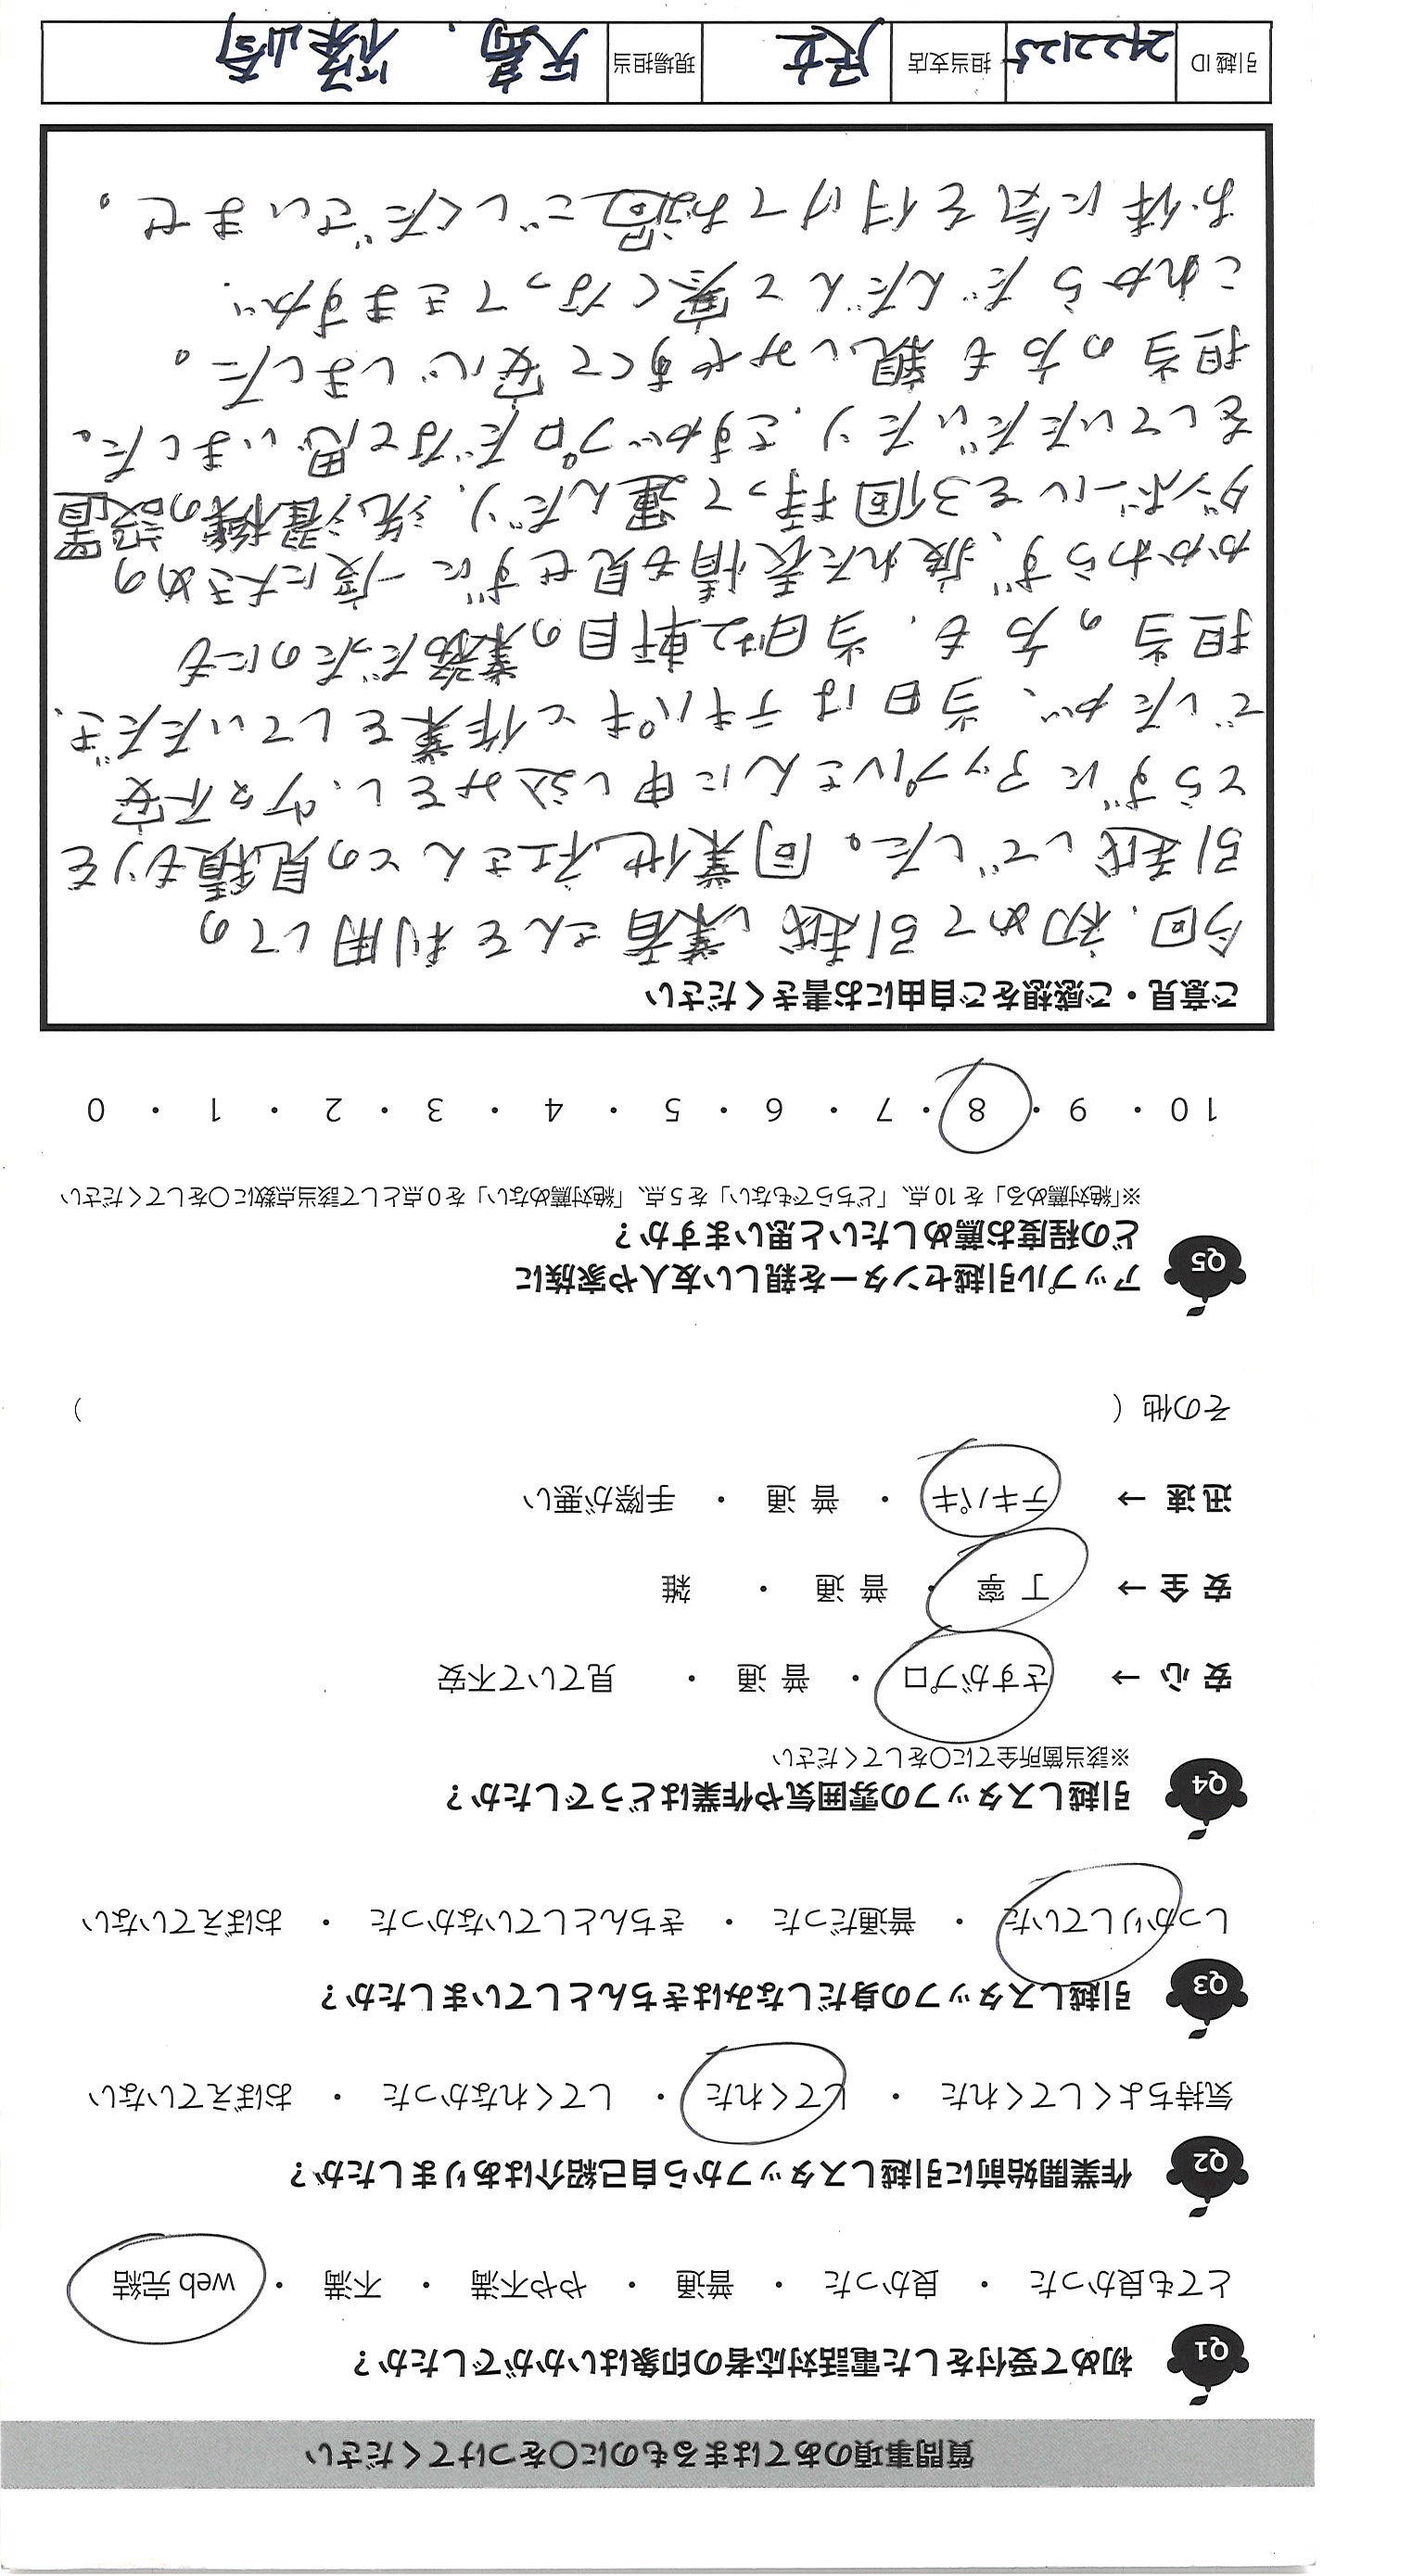 質問事項のあてはまるものに○をつけてください
Q1 初めて受付をした電話対応者の印象はいかがでしたか？
とても良かった ・ 良かった ・ 普通 ・ やや不満 ・ 不満 ・ web 完結
Q2 作業開始前に引越しスタッフから自己紹介はありましたか？
気持ちよくしてくれた ・ してくれた ・ してくれなかった ・ おぼえていない
Q3 引越しスタッフの身だしなみはきちんとしていましたか？
しっかりしていた ・ 普通だった ・ きちんとしていなかった ・ おぼえていない
Q4 引越しスタッフの雰囲気や作業はどうでしたか？
※該当箇所全てに○をしてください
安心 → さすがプロ ・ 普通 ・ 見ていて不安
安全 → 丁寧 ・ 普通 ・ 雑
迅速 → テキパキ ・ 普通 ・ 手際が悪い
その他（ ）
Q5 アップル引越センターを親しい友人や家族に
どの程度お薦めしたいと思いますか？
※「絶対薦める」を 10 点、「どちらでもない」を 5 点、「絶対薦めない」を 0 点として該当点数に○をしてください
10 ・ 9 ・ 8 ・ 7 ・ 6 ・ 5 ・ 4 ・ 3 ・ 2 ・ 1 ・ 0
ご意見・ご感想をご自由にお書きください
今回、初めて引越し業者さんを利用しての
引越しでした。同業他社さんとの見積もりを
とらずにアップルさんに申し込みをし、少々不安
でしたが、当日はテキパキと作業をしていただき、
担当の方も、当日2軒目の業務だったのにも
かかわらず、疲れた表情も見せずに一度に大きめの
ダンボールを3個持って運んだり、洗濯機の設置
をしていただいたり、さすがプロだなと思いました。
担当の方も親しみやすくて安心しました。
これからだんだんと寒くなってきますが、
お体に気を付けてお過ごしくださいませ。
引越 ID 2422125 担当支店 足立 現場担当 矢島、篠崎